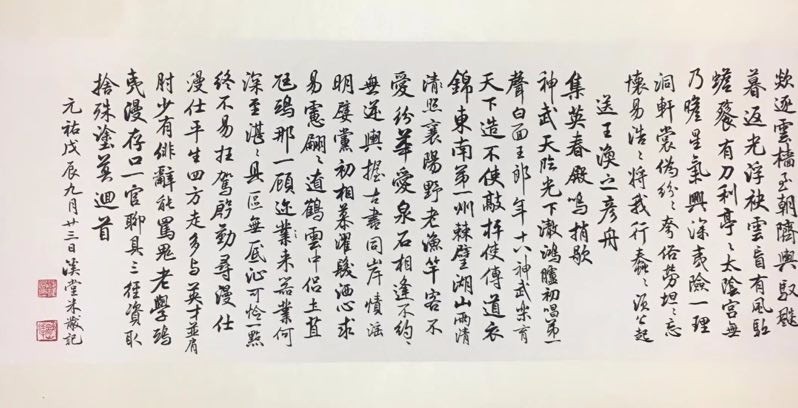 欻逐雲檣至朝隮輿馭飈
暮返光浮袂雲盲有風駈
蟾餮有刀利亭〻太陰宮無
乃瞻星氣興深夷險一理
洞軒裳偽紛〻夸俗勞坦〻忘
懷易浩〻將我行蠢〻須公起
送王渙之彥舟
集英春殿鳴捎歇
神武天臨光下澈鴻臚初唱第一
聲白面王郎年十八神武樂育
天下造不使敲抨使傳道衣
錦東南第一州棘璧湖山兩清
清照襄陽野老漁竿客不
愛紛華愛泉石相逢不約〻
無逆輿握古書同岸幘淫
朋嬖黨初相慕濯髮灑心求
易慮翩〻遼鶴雲中侶土苴
尫鴟那一顧迩業来器業何
深至湛〻具區無底沚可憐一點
終不易枉駕殷勤尋漫仕
漫仕平生四方走多与英才並肩
肘少有俳辭能罵鬼老學鴟
夷漫存口一官聊具三徑資取
捨殊塗莫迴首
元祐戊辰九月廿三日溪堂米黻記